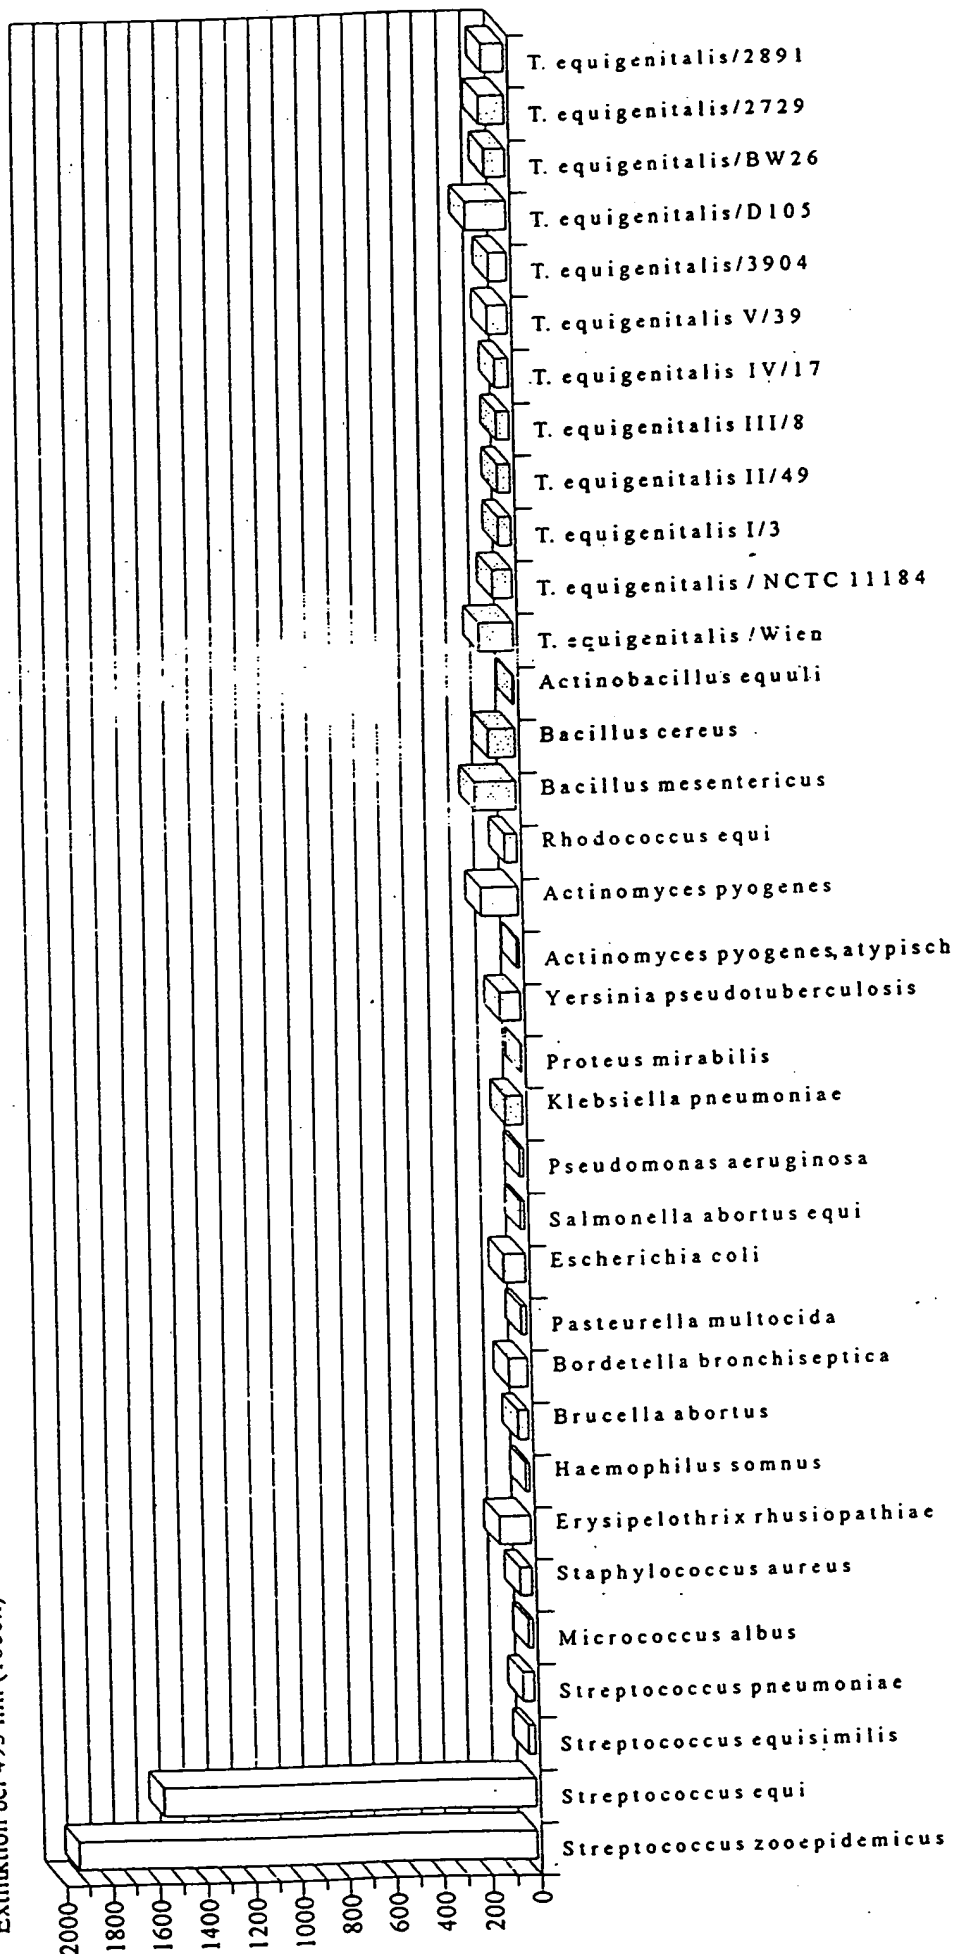 T. equigenitalis/2891
T. equigenitalis/2729
T. equigenitalis/BW26
T. equigenitalis/D105
T. equigenitalis/3904
T. equigenitalis V/39
T. equigenitalis IV/17
T. equigenitalis III/8
T. equigenitalis II/49
T. equigenitalis I/3
T. equigenitalis / NCTC 11184
T. equigenitalis /Wien
Actinobacillus equuli
Bacillus cereus
Bacillus mesentericus
Rhodococcus equi
Actinomyces pyogenes
Actinomyces pyogenes, atypisch
Yersinia pseudotuberculosis
Proteus mirabilis
Klebsiella pneumoniae
Pseudomonas aeruginosa
Salmonella abortus equi
Escherichia coli
Pasteurella multocida
Bordetella bronchiseptica
Brucella abortus
Haemophilus somnus
Erysipelothrix rhusiopathiae
Staphylococcus aureus
Micrococcus albus
Streptococcus pneumoniae
Streptococcus equisimilis
Streptococcus equi
Streptococcus zooepidemicus
2000
1800
1600
1400
1200
1000
800
600
400
200
0